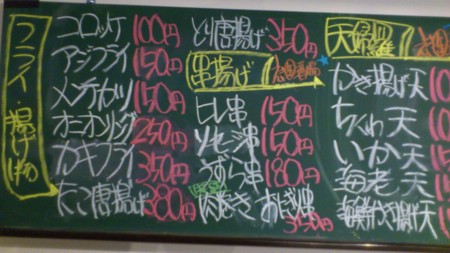 フライ・揚げもの
コロッケ 100円
アジフライ 150円
メンチカツ 150円
オニオンリング 250円
カキフライ 350円
たこ唐揚げ 380円
とり唐揚げ 350円
串揚げ
ヒレ串 150円
ソーセージ串 150円
うずら串 180円
肉巻きおにぎり串 350円
天婦羅
かき揚げ天
ちくわ天
いか天
海老天
海鮮かき揚げ天